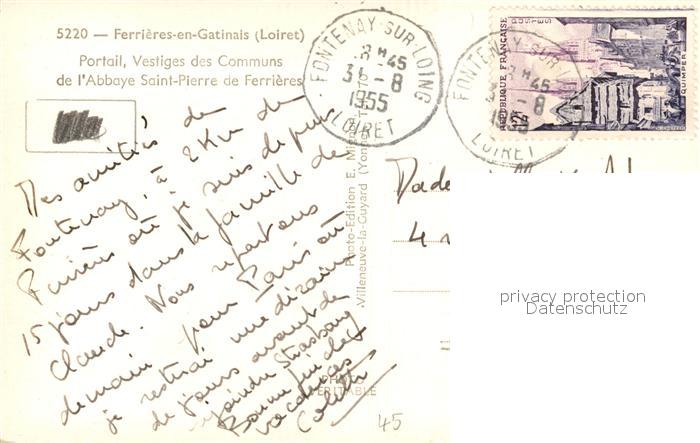 5220 — Ferrières-en-Gatinais (Loiret)
Portail, Vestiges des Communs
de l'Abbaye Saint-Pierre de Ferrières
Des amitiés de
Fontenay, à 2 Km de
Ferrières où je suis depuis
15 jours dans la famille de
Claude. Nous repartons
demain pour Paris où
je resterai une dizaine
de jours avant de
rejoindre Strasbourg
Bonne fin de
vacances
Colette
Photo-Edition E. Mignon
Villeneuve-la-Guyard (Yonne)
VERITABLE
FONTENAY-SUR-LOING
8 H 45
31-8
1955
LOIRET
FONTENAY-SUR-L
H 45
-8
1955
LOIRET
REPUBLIQUE FRANÇAISE
POSTES
QUIMPER
4
privacy protection
Datenschutz
45